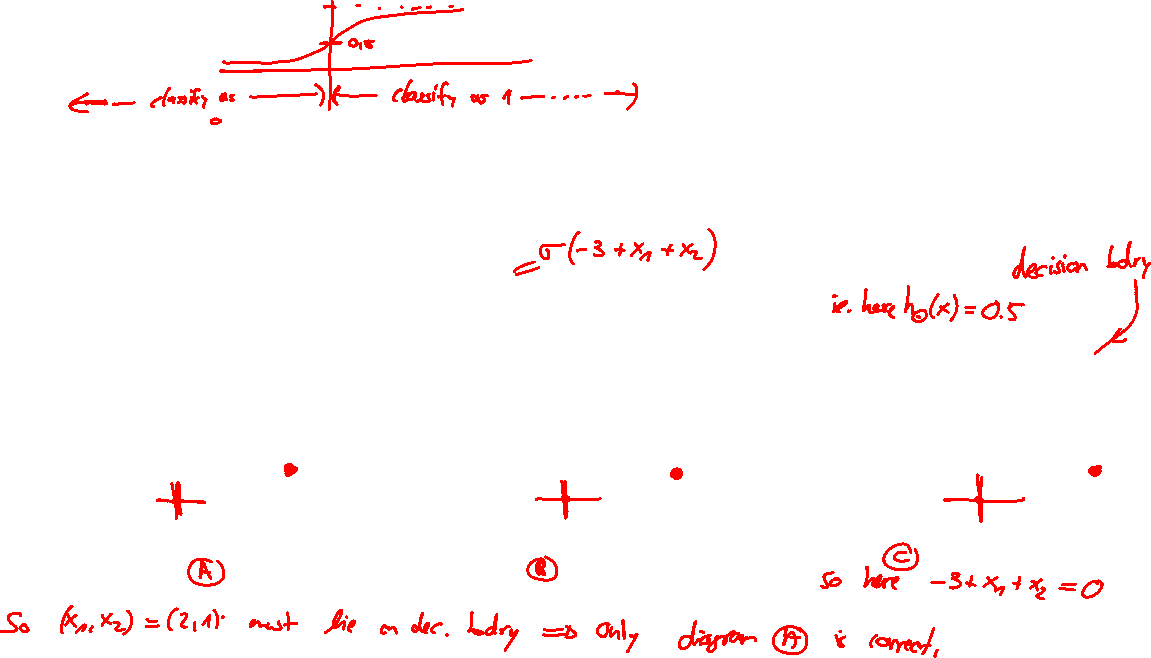 0,5
classify as 0
classify as 1
= σ(-3 + x₁ + x₂)
decision bdry
ie. here h_Θ(x) = 0.5
A
B
C
so here -3 + x₁ + x₂ = 0
So (x₁, x₂) = (2,1) must lie on dec. bdry ⇒ Only diagram A is correct.